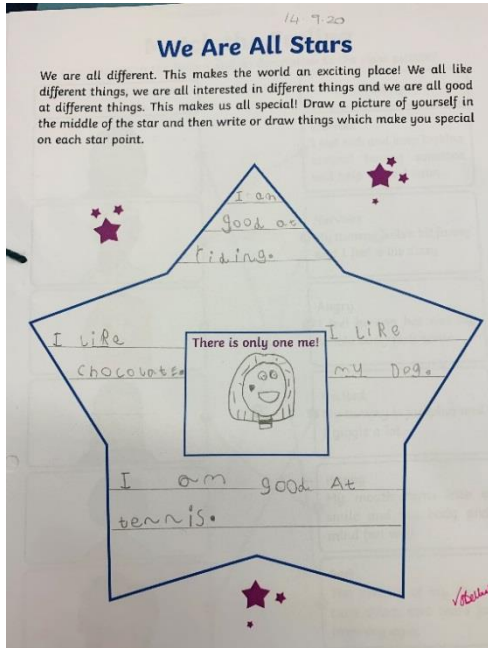 14.9.20
We Are All Stars
We are all different. This makes the world an exciting place! We all like
different things, we are all interested in different things and we are all good
at different things. This makes us all special! Draw a picture of yourself in
the middle of the star and then write or draw things which make you special
on each star point.
I an
good at
riding.
I like
chocolate.
There is only one me!
I like
my Dog.
I am good At
tennis.